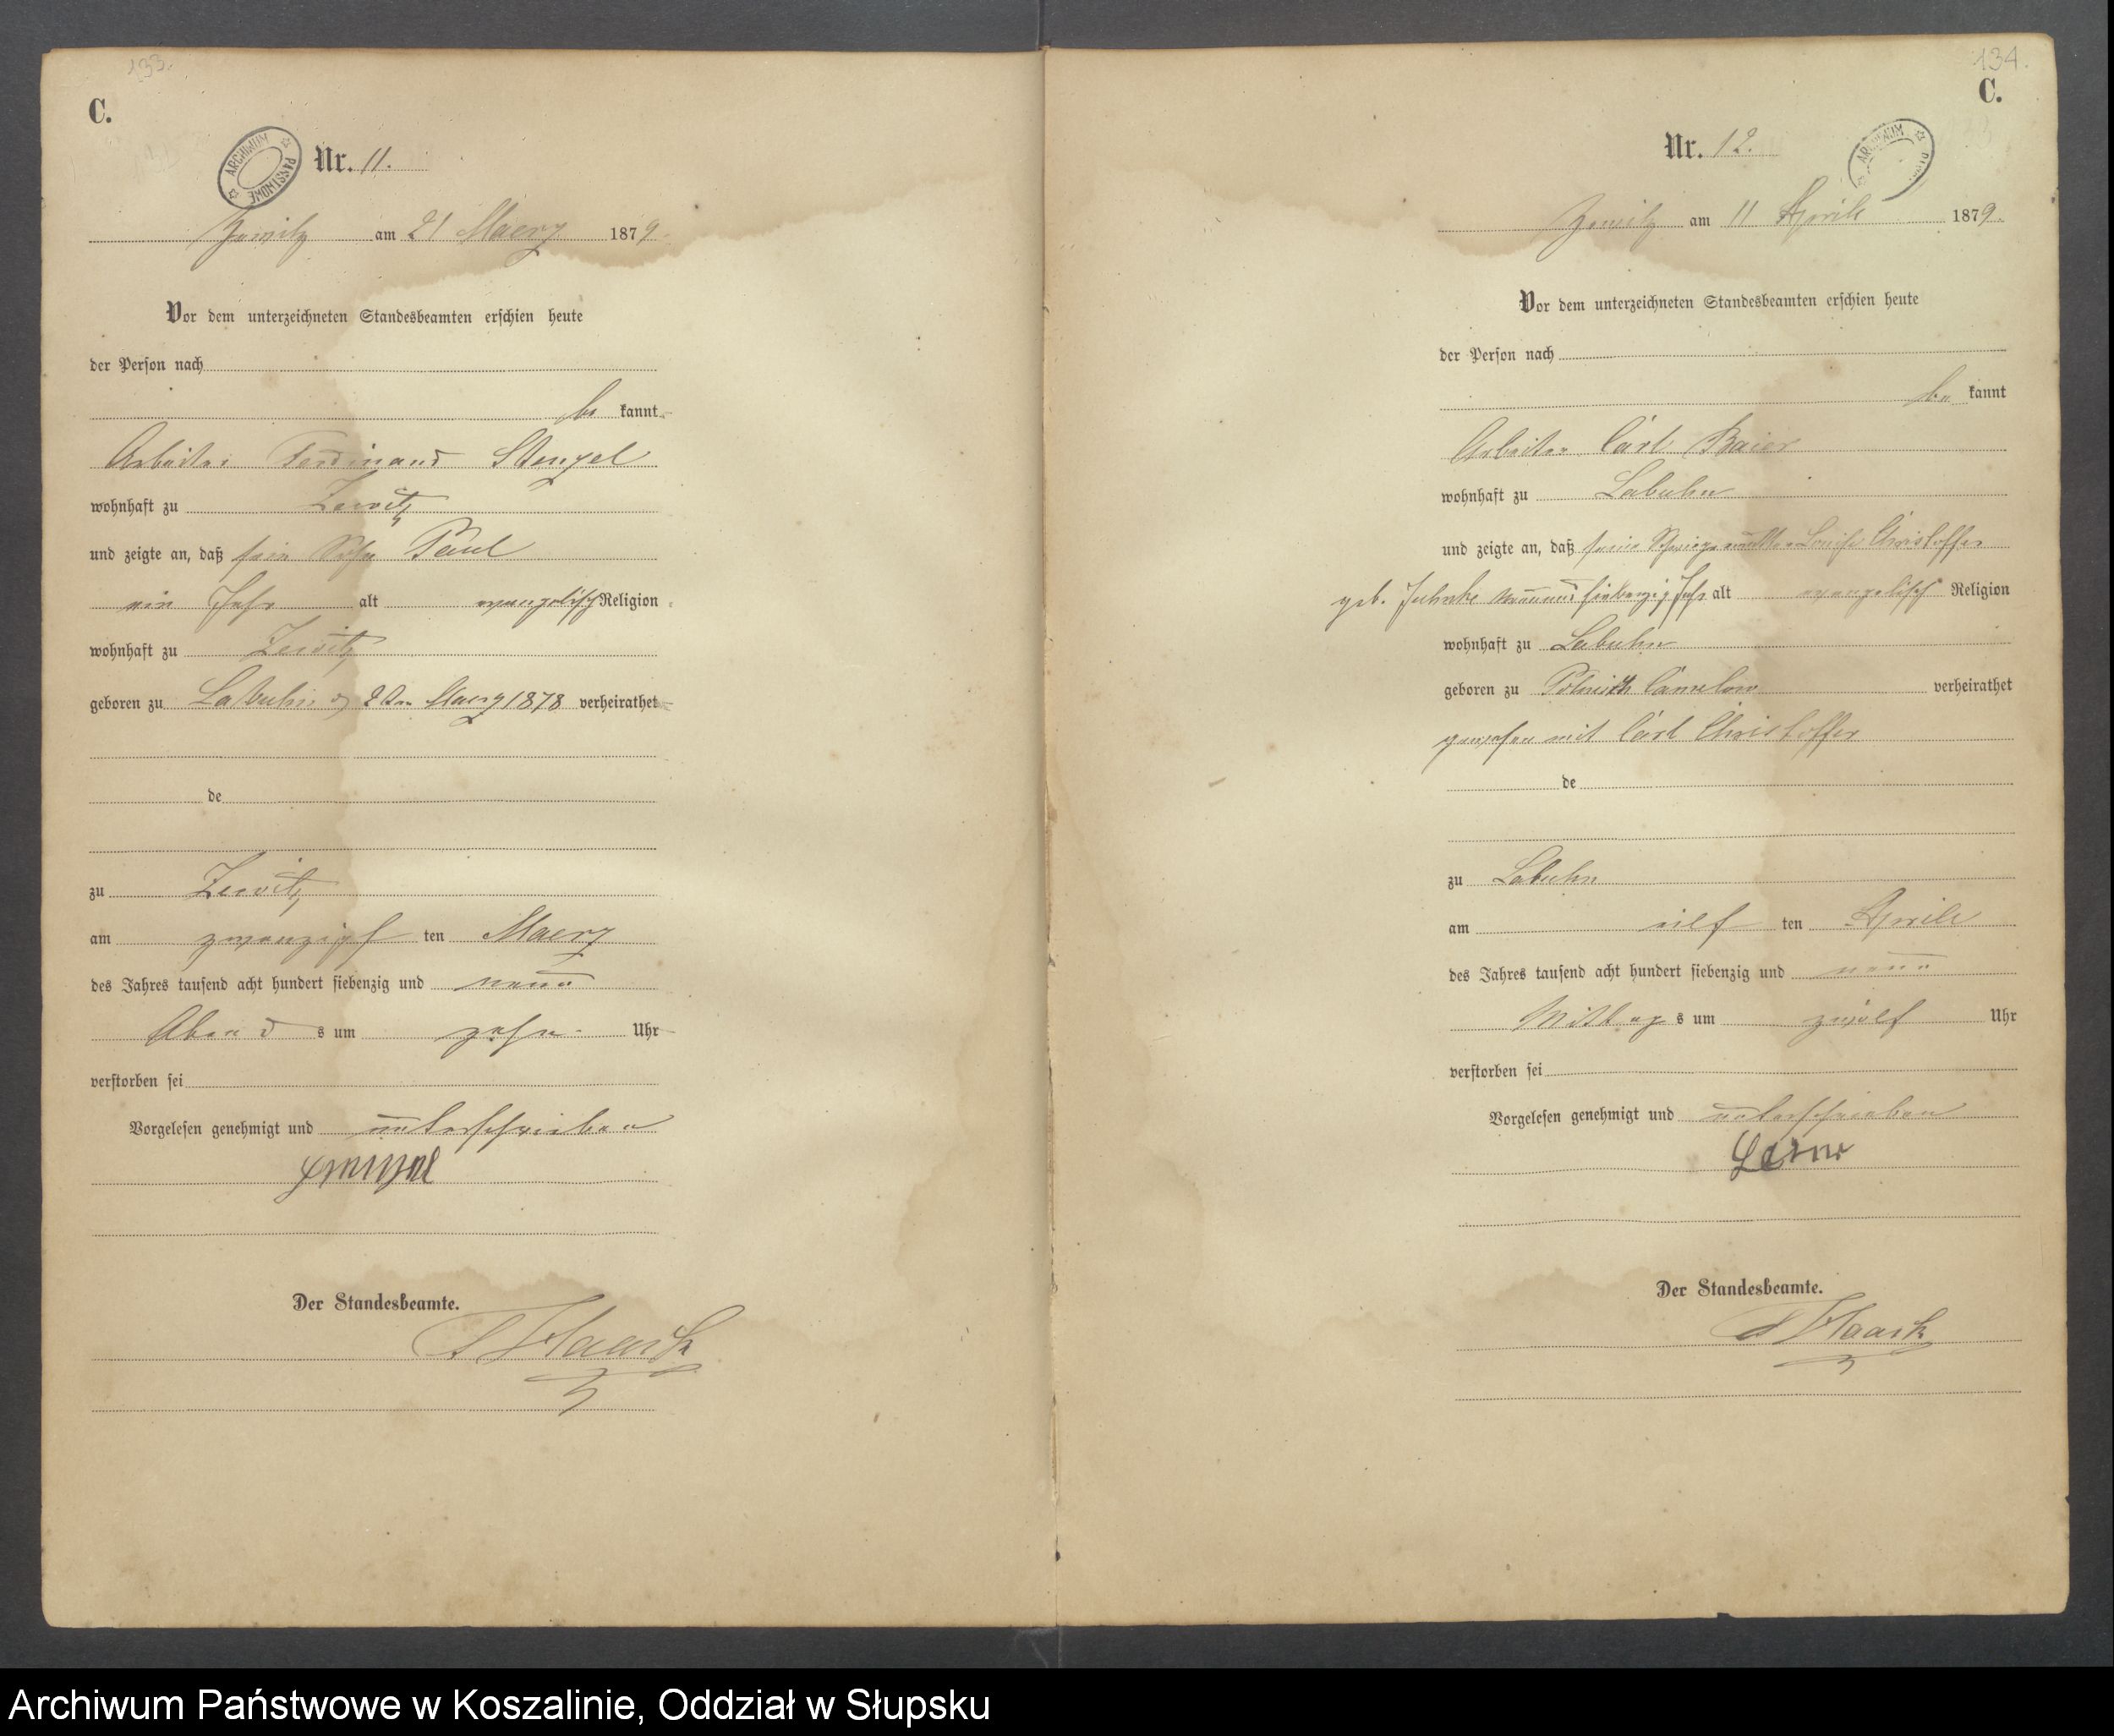 133.
C.
ARCHIWUM PAŃSTWOWE
Nr. 11.
Zewitz am 21 Maerz 1879.
Vor dem unterzeichneten Standesbeamten erschien heute
der Person nach
be kannt
Arbeiter Ferdinand Stenzel
wohnhaft zu Zewitz
und zeigte an, daß sein Sohn Paul
ein Jahr alt evangelisch Religion
wohnhaft zu Zewitz
geboren zu Labuhn Maerz 1878 verheirathet
de
zu Zewitz
am zwanzigs ten Maerz
des Jahres tausend acht hundert siebenzig und neun
Abend s um zehn Uhr
verstorben sei
Vorgelesen genehmigt und unterschrieben
Der Standesbeamte.
Haack
134.
C.
ARCHIWUM
Nr. 12.
Zewitz am 11 Aprile 1879.
Vor dem unterzeichneten Standesbeamten erschien heute
der Person nach
be kannt
Arbeiter Carl Baier
wohnhaft zu Labuhn
und zeigte an, daß seine Schwiegermutter Louise Christoffer
geb. Juhnke neunundsiebenzig Jahr alt evangelisch Religion
wohnhaft zu Labuhn
geboren zu verheirathet
gewesen mit Carl Christoffer
de
zu Labuhn
am eilf ten Aprile
des Jahres tausend acht hundert siebenzig und neun
Mittag s um zwölf Uhr
verstorben sei
Vorgelesen genehmigt und unterschrieben
Der Standesbeamte.
Haack
Archiwum Państwowe w Koszalinie, Oddział w Słupsku